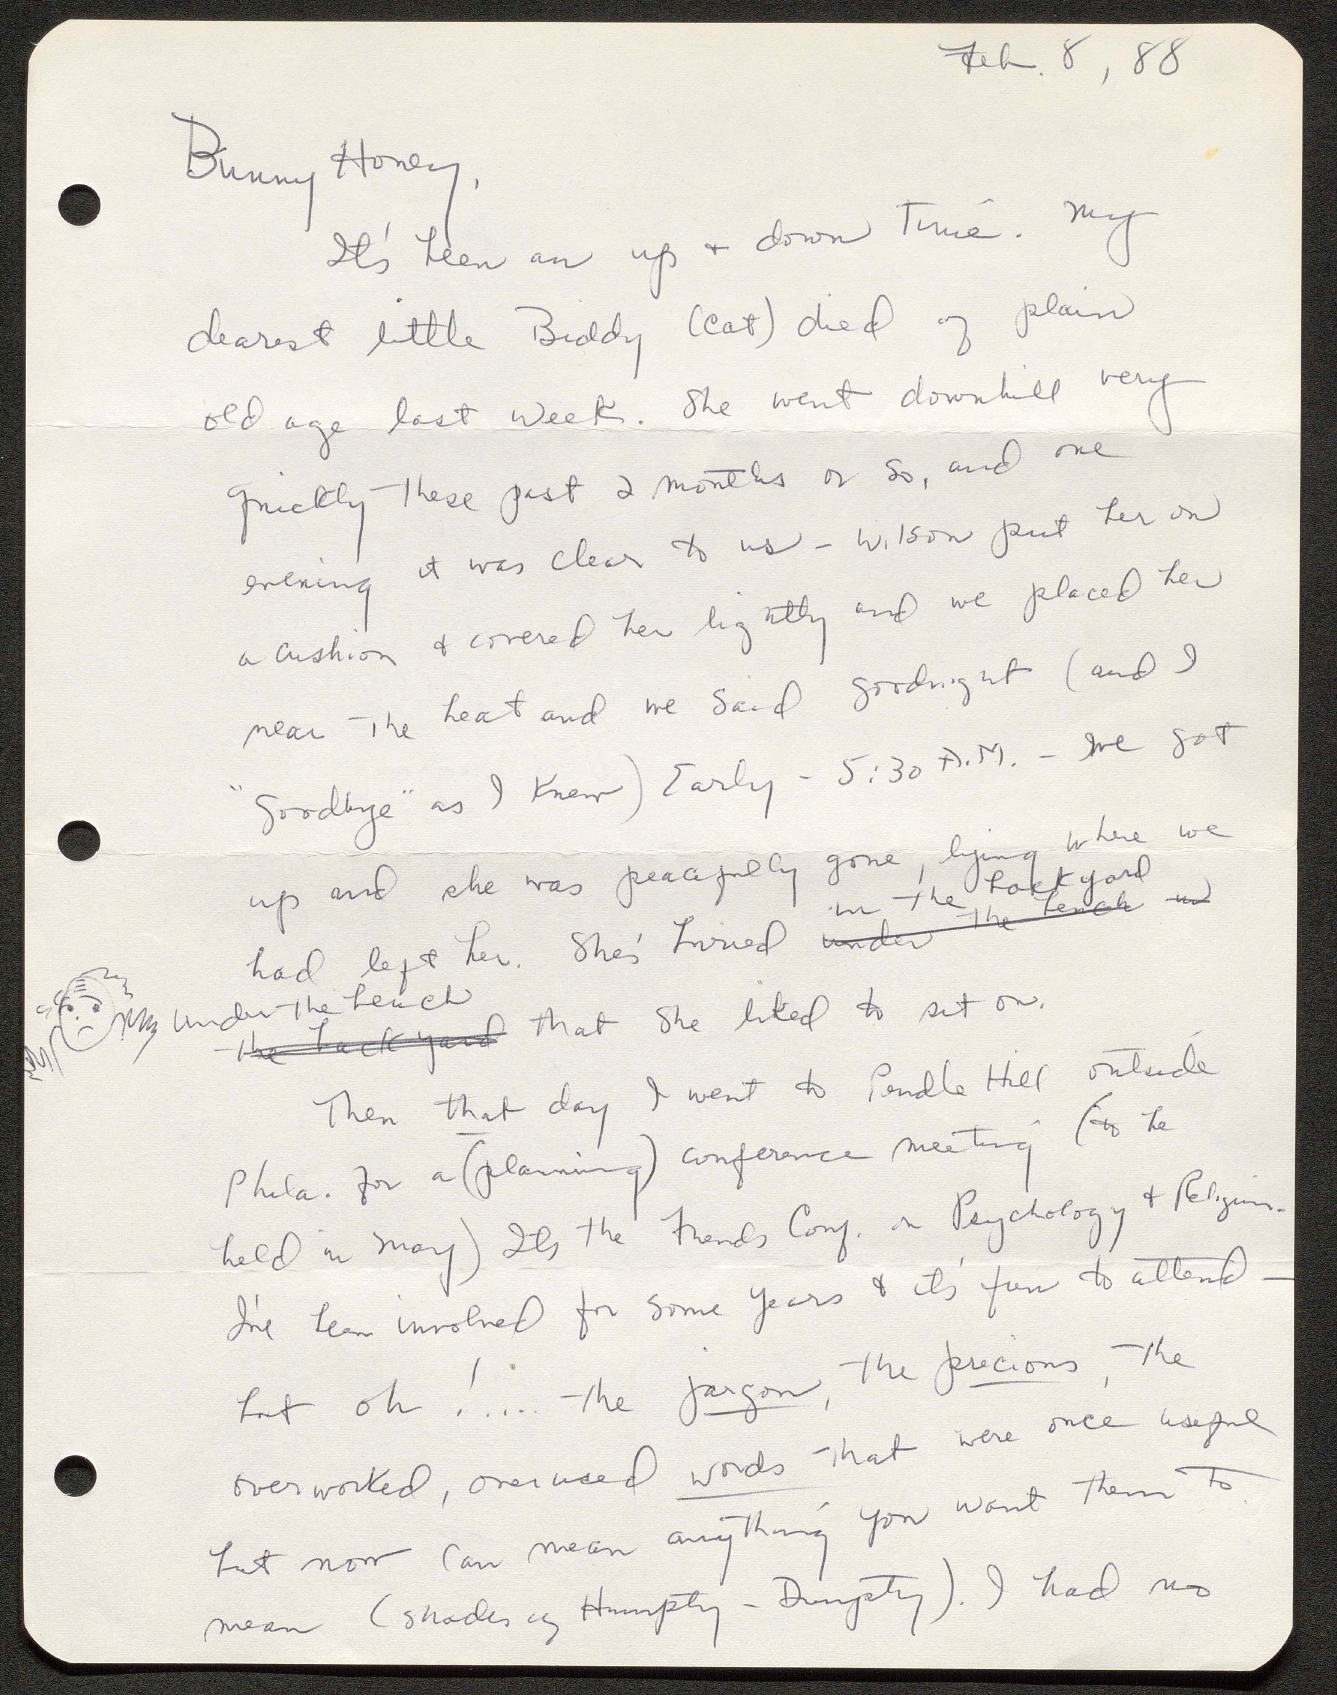 Feb. 8, 88
Bunny Honey,
It's been an up + down time. My
dearest little Biddy (cat) died of plain
old age last week. She went downhill very
quickly these past 2 months or so, and one
evening it was clear to us - Wilson put her on
a cushion + covered her lightly and we placed her
near the heat and we said goodnight (and I
"Goodbye" as I knew) Early - 5:30 A.M. - we got
up and she was peacefully gone, lying where we
in the backyard
had left her. She's buried under the bench in
under the bench
the back yard that she liked to sit on.
Then that day I went to Pendle Hill outside
Phila. for a (planning) conference meeting (to be
held in May) It's the Friends Conf. on Psychology + Religion.
I've been involved for some years + it's fun to attend -
but oh ! .... the jargon, the precious, the
overworked, overused words that were once useful
but now can mean anything you want them to
mean (shades of Humpty-Dumpty). I had no